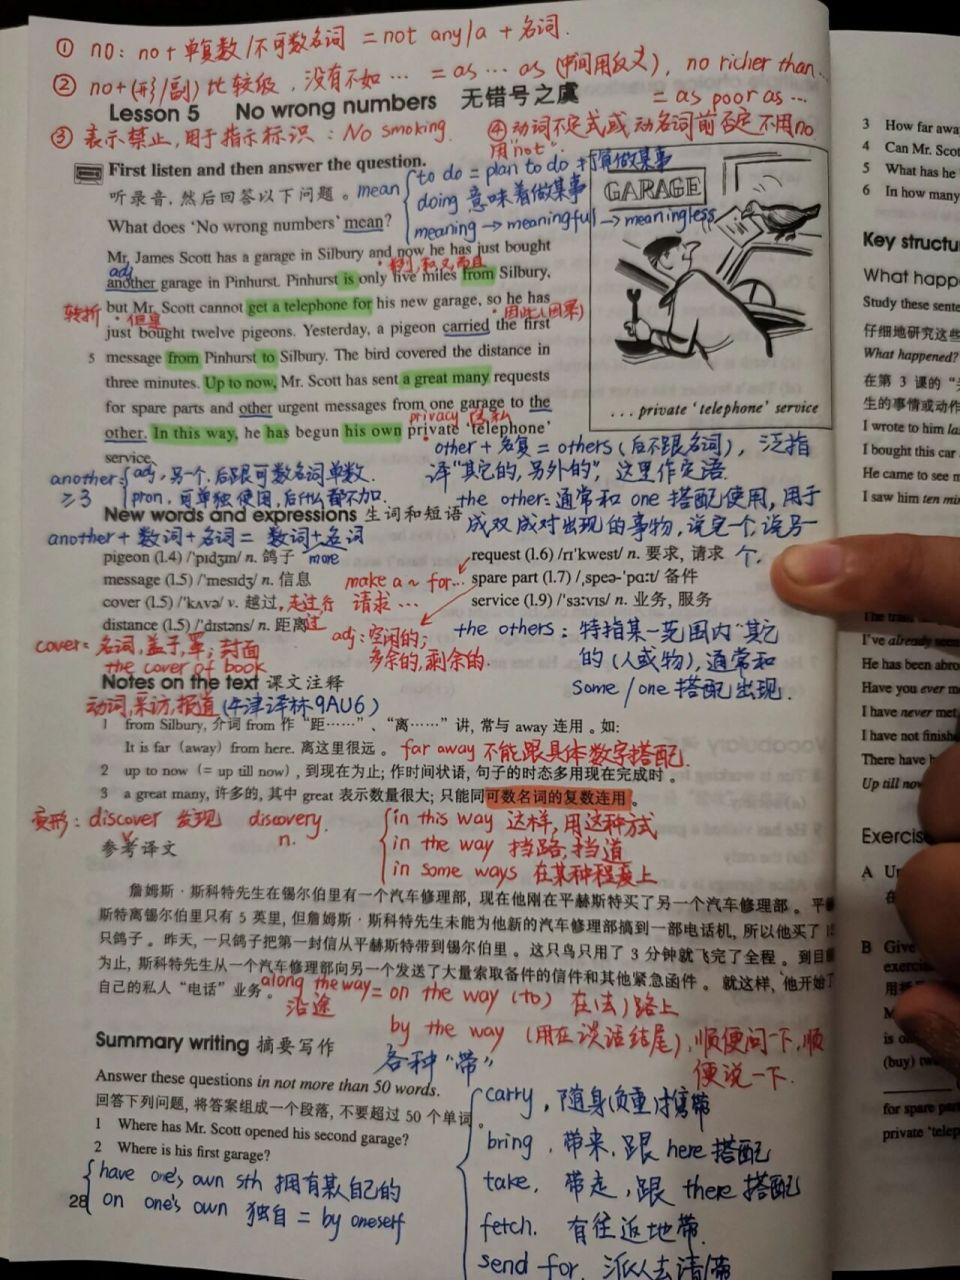 ① no: no+单复数/不可数名词 =not any/a + 名词.
② no+(形/副)比较级, 没有不如… = as … as (中间用反义), no richer than…
= as poor as …
Lesson 5 No wrong numbers 无错号之虞
③ 表示禁止, 用于指示标识: No smoking.
④动词不定式或动名词前否定不用no
用"not".
First listen and then answer the question.
听录音, 然后回答以下问题。
What does ‘No wrong numbers’ mean?
mean
to do = plan to do 打算做某事
doing 意味着做某事
meaning → meaningful → meaningless
GARAGE
. . . private ‘telephone’ service
Mr. James Scott has a garage in Silbury and now he has just bought
adj
another garage in Pinhurst. Pinhurst is only five miles from Silbury,
转折
but Mr. Scott cannot get a telephone for his new garage, so he has
但是
因此(因果)
just bought twelve pigeons. Yesterday, a pigeon carried the first
5 message from Pinhurst to Silbury. The bird covered the distance in
three minutes. Up to now, Mr. Scott has sent a great many requests
for spare parts and other urgent messages from one garage to the
privacy 隐私
other. In this way, he has begun his own private ‘telephone’
service.
other + 名复 = others (后不跟名词), 泛指
译"其它的, 另外的", 这里作定语.
another: adj, 另一个, 后跟可数名词单数.
≥3 pron, 可单独使用, 后什么都不加.
another + 数词+名词= 数词+more+名词
the other: 通常和 one 搭配使用, 用于
成双成对出现的事物, 说完一个, 说另一
个.
New words and expressions 生词和短语
pigeon (l.4) /ˈpɪdʒɪn/ n. 鸽子
message (l.5) /ˈmesɪdʒ/ n. 信息
cover (l.5) /ˈkʌvə/ v. 越过, 走过行
distance (l.5) /ˈdɪstəns/ n. 距离
request (l.6) /rɪˈkwest/ n. 要求, 请求
spare part (l.7) /ˌspeə-ˈpɑːt/ 备件
service (l.9) /ˈsɜːvɪs/ n. 业务, 服务
make a ~ for…
请求…
adj: 空闲的;
多余的, 剩余的.
the others: 特指某一范围内"其它
的(人或物), 通常和
some/one 搭配出现.
cover: 名词, 盖子, 罩; 封面
the cover of book
动词, 采访, 报道 (牛津译林9AU6)
Notes on the text 课文注释
1 from Silbury, 介词 from 作 “距……”、“离……”讲, 常与 away 连用。如:
It is far (away) from here. 离这里很远。
far away 不能跟具体数字搭配.
2 up to now (= up till now), 到现在为止; 作时间状语, 句子的时态多用现在完成时。
3 a great many, 许多的, 其中 great 表示数量很大; 只能同可数名词的复数连用。
变形: discover 发现 discovery.
v. n.
in this way 这样, 用这种方式
in the way 挡路, 挡道
in some ways 在某种程度上
参考译文
詹姆斯·斯科特先生在锡尔伯里有一个汽车修理部, 现在他刚在平赫斯特买了另一个汽车修理部。平
斯特离锡尔伯里只有 5 英里, 但詹姆斯·斯科特先生未能为他新的汽车修理部搞到一部电话机, 所以他买了
只鸽子。昨天, 一只鸽子把第一封信从平赫斯特带到锡尔伯里。这只鸟只用了 3 分钟就飞完了全程。到目
为止, 斯科特先生从一个汽车修理部向另一个发送了大量索取备件的信件和其他紧急函件。就这样, 他开始了
自己的私人“电话”业务。
along the way = on the way (to) 在(去)路上
沿途
by the way (用在谈话结尾), 顺便问一下, 顺
便说一下.
Summary writing 摘要写作
各种"带"
Answer these questions in not more than 50 words.
回答下列问题, 将答案组成一个段落, 不要超过 50 个单词。
1 Where has Mr. Scott opened his second garage?
2 Where is his first garage?
carry, 随身(负重)携带
bring, 带来, 跟 here 搭配
take, 带走, 跟 there 搭配
fetch. 有往返地带.
send for, 派人去请/带
have one's own sth 拥有某人自己的
on one's own 独自 = by oneself
28
3 How far awa
4 Can Mr. Scot
5 What has he
6 In how many
Key structu
What happ
Study these sente
仔细地研究这些
What happened?
在第 3 课的“
生的事情或动作
I wrote to him la
I bought this car
He came to see m
I saw him ten mi
I’ve already seen
He has been abro
Have you ever m
I have never met
I have not finish
There have b
Up till now
Exercise
A
B Give
exercis
(buy) tw
for spare part
private ‘telep